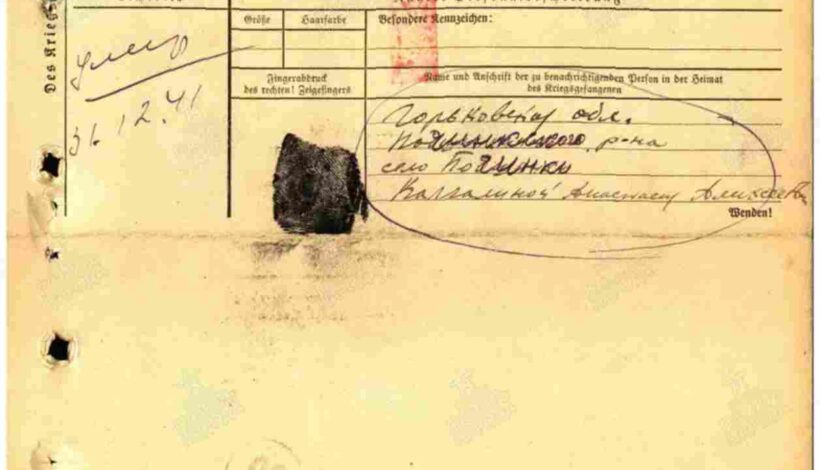 Größe
Haarfarbe
Besondere Kennzeichen:
Des Kriegs
умер
31.12.41
Fingerabdruck
des rechten! Zeigefingers
Name und Anschrift der zu benachrichtigenden Person in der Heimat
des Kriegsgefangenen
Горьковская обл.
Починковского р-на
село Починки
Каргалиной Анастасии Алексеевн
Wenden!